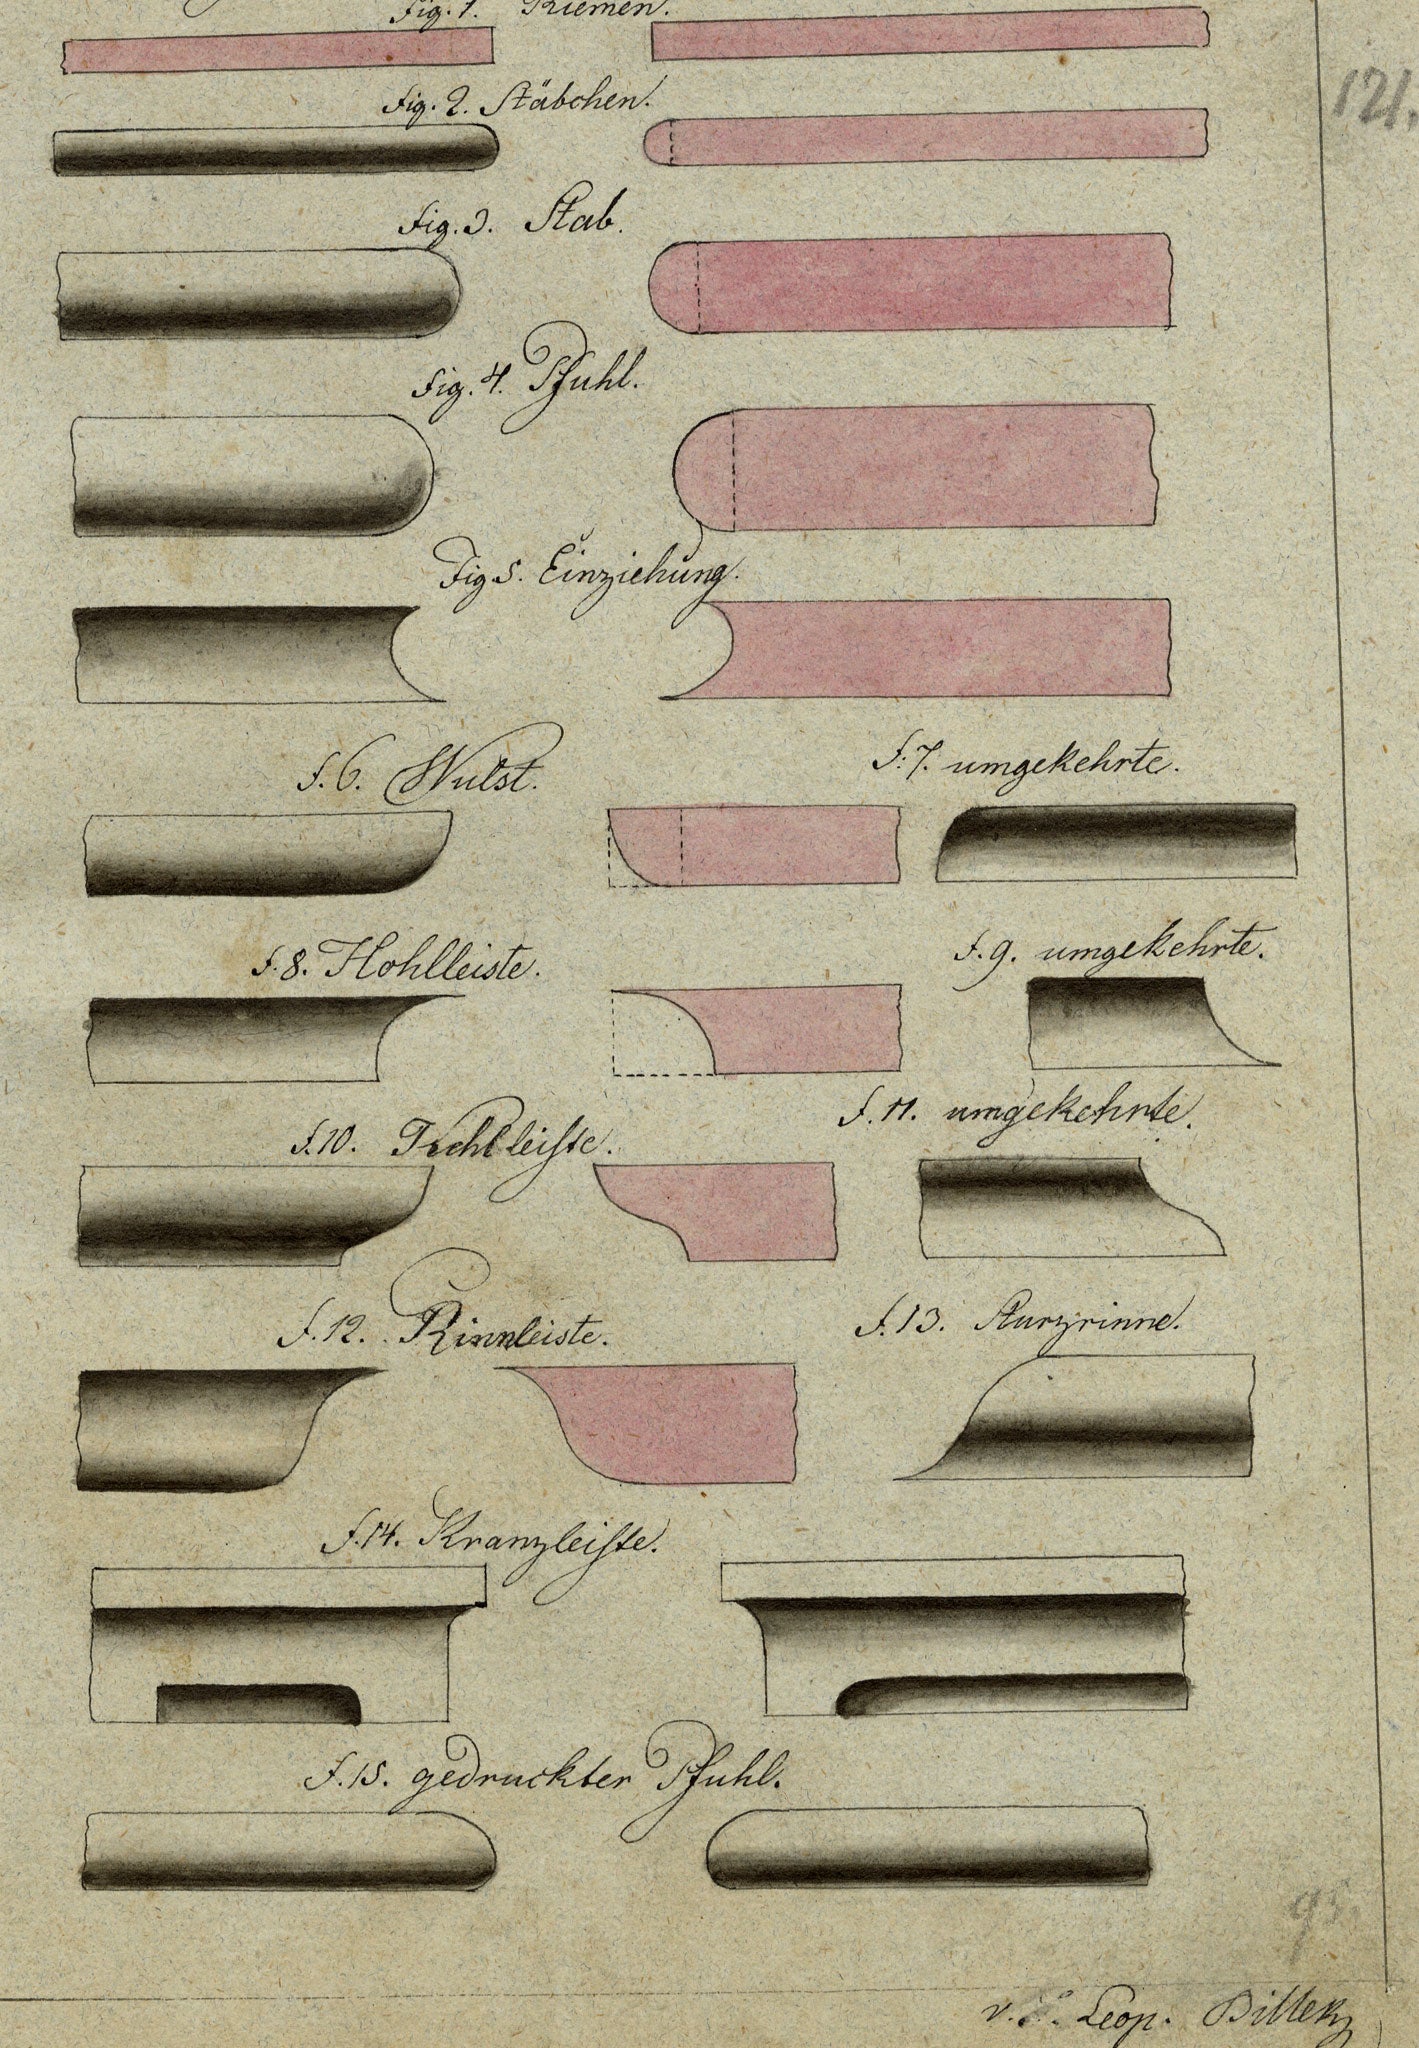 Fig. 1. Riemen.
121.
Fig. 2. Stäbchen.
Fig. 3. Stab.
Fig. 4. Pfuhl.
Fig 5. Einziehung.
f. 6. Wulst.
f: 7. umgekehrte.
f. 8. Hohlleiste.
f. 9. umgekehrte.
f. 10. Kehlleiste.
f. 11. umgekehrte.
f. 12. Rinnleiste.
f. 13. Sturzrinne.
f. 14. Kranzleiste.
f. 15. gedruckter Pfuhl.
95.
v. Leop.